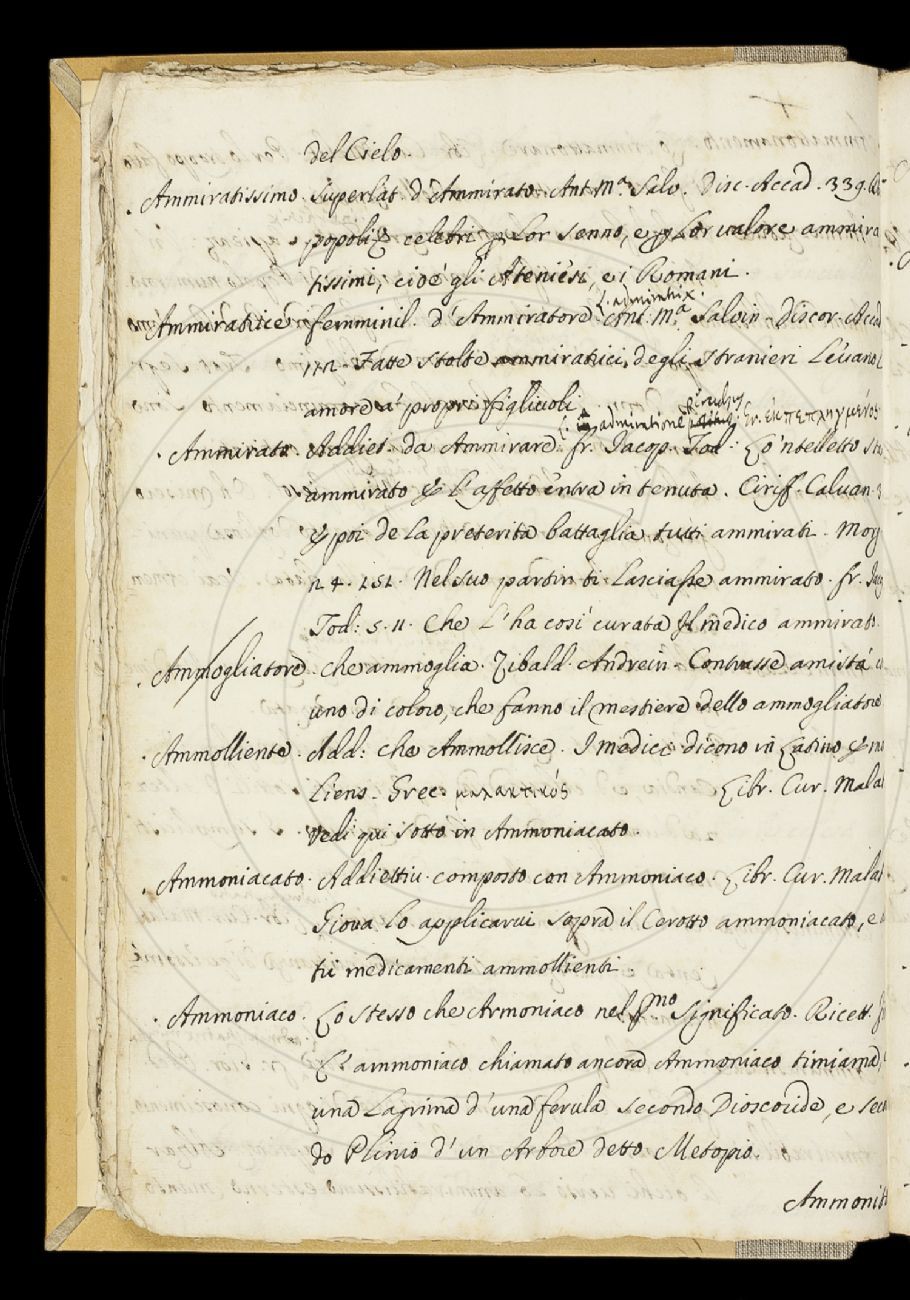 del Cielo.
Ammiratissimo. Superlat. d'Ammirato. Ant. Mª. Salv. Disc. Accad. 339.
popoli celebri p Lor senno, e p Lor valore ammira
tissimi, cioè gli Ateniesi, e i Romani.
L. admiratrix.
Ammiratrice femminil. d'Ammiratore. Ant. Mª. Salvin. Discor. Accad
Fatte stolte ammiratrici degli stranieri Levano
amore a' propri figliuoli.
L. admiratione Gr. ἐκπεπληγμένος
Ammirato. Addiet. da Ammirare. fr. Jacop. Tod. Lo 'ntelletto
ammirato & l'affetto entra in tenuta. Ciriff. Calvan.
& poi de la preterita battaglia tutti ammirati. Morg
24. 151. Nel suo partir ti lasciasse ammirato. fr. Jac
Tod: 5. 11. Che L'ha così curata Il medico ammirato
Ammogliatore. che ammoglia. Zibald. Andrein. Contrasse amistà
uno di coloro, che fanno il mestiere dello ammogliatore
Ammolliente. Add: che Ammollisce. I medici dicono in Latino
Liens. Grec. μαλακτικός Libr. Cur. Malat
Vedi qui sotto in Ammoniacato.
Ammoniacato. Addiettiv. composto con Ammoniaco. Libr. Cur. Malat
Giova lo applicarvi sopra il Cerotto ammoniacato, e
tri medicamenti ammollienti.
Ammoniaco. Lo stesso che Armoniaco nel pmo significato. Ricett.
L'ammoniaco chiamato ancora Ammoniaco timiama,
una Lagrima d'una ferula secondo Dioscoride, e secon
do Plinio d'un Arbore detto Metopio.
Ammonit